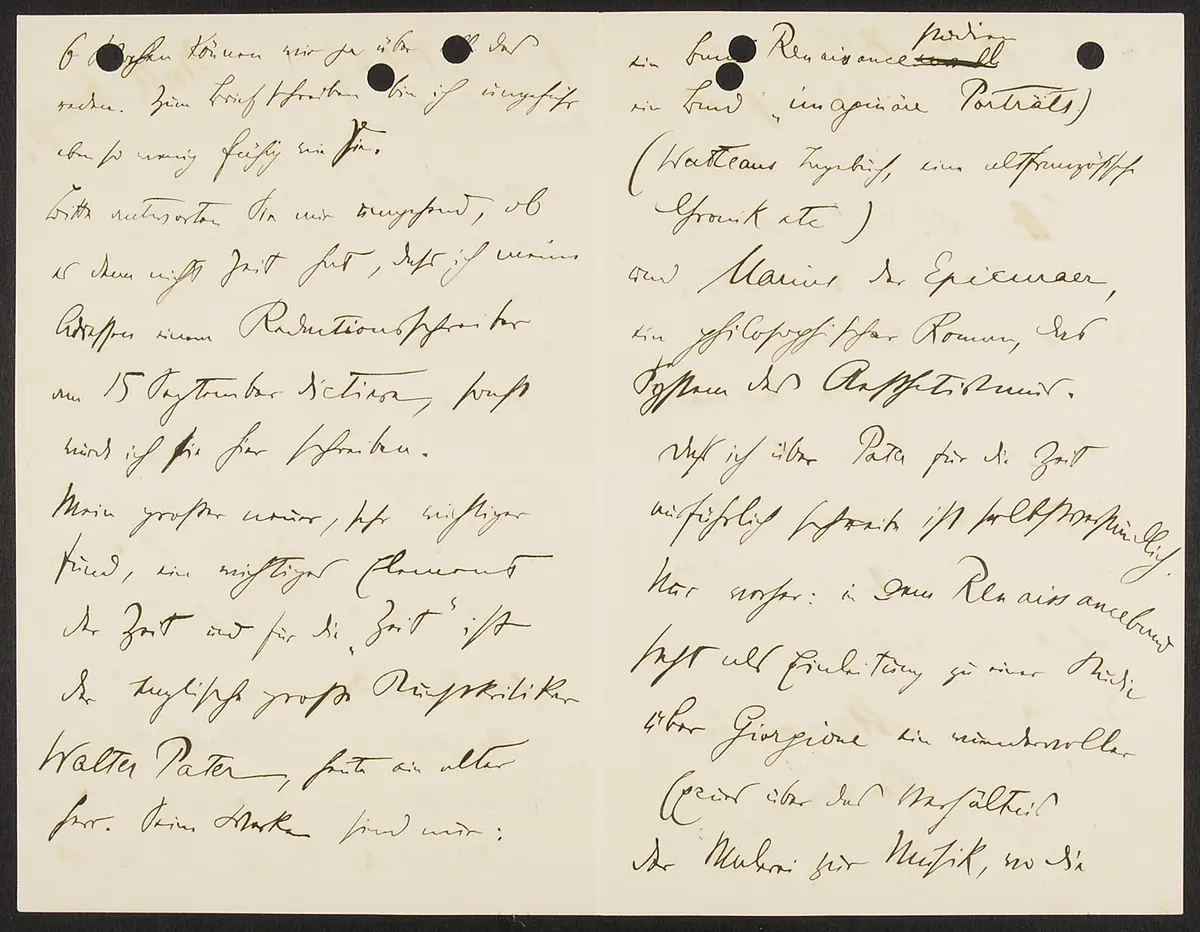 6 Wochen können wir ja über all das
reden. Zum Briefschreiben bin ich ungefähr
eben so wenig fähig wie Sie.
Bitte antworten Sie mir umgehend, ob
es denn nicht Zeit hat, daß ich meine
Adressen einem Redactionsschreiber
am 15 September dictiere, sonst
würde ich sie hier schreiben.
Mein großer neuer, sehr wichtiger
Fund, ein wichtiges Element
der Zeit und für die „Zeit“ ist
der englische große Kunstkritiker
Walter Pater, heute ein alter
Herr. Seine Werke sind nur:
ein Band Renaissancestudien
ein Band „imaginäre Porträts)
(Watteaus Tagebuch, eine altfranzösische
Chronik etc)
und Marius der Epicuraer,
ein philosophischer Roman, das
System des Aesthetismus.
Daß ich über Pater für die Zeit
ausführlich schreibe ist selbstverständlich.
Nur vorher: in dem Renaissanceband
steht als Einleitung zu einer Studie
über Giorgione ein wundervoller
Excurs über das Verhältnis
der Malerei zur Musik, wo die